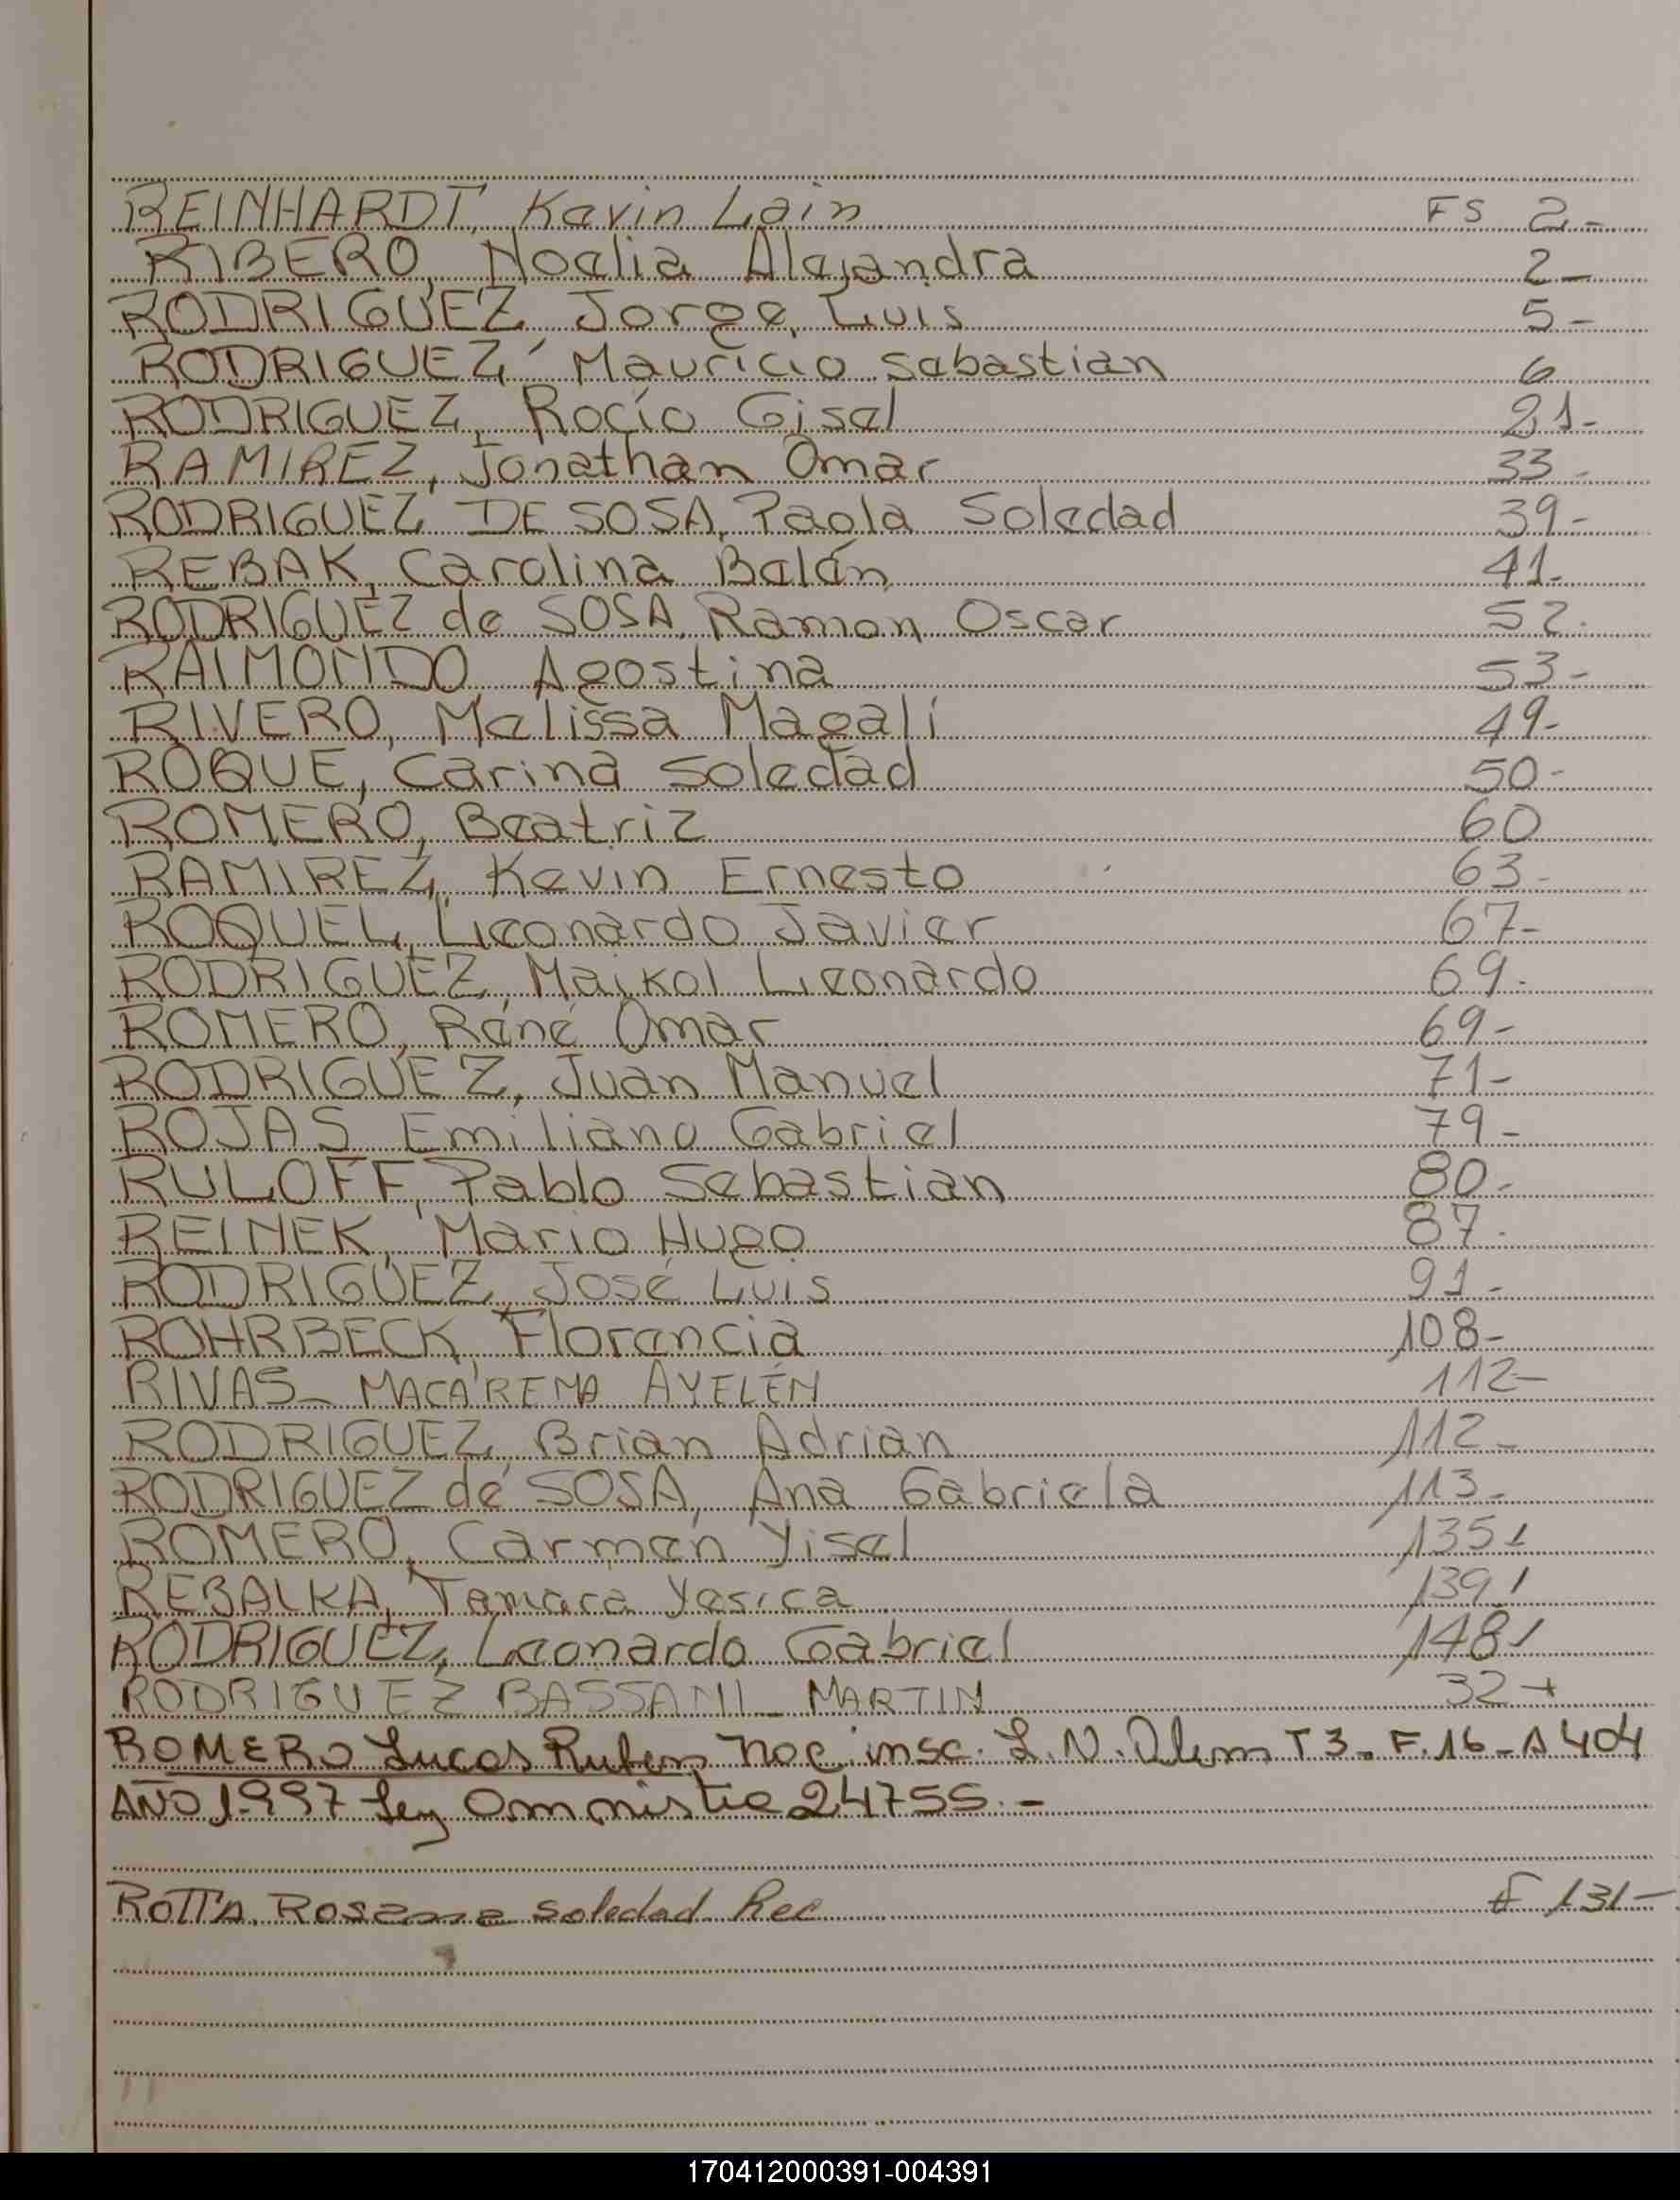 REINHARDT, Kevin Lein FS 2-
RIBERO, Noelia Alejandra 2-
RODRIGUEZ Jorge Luis 5-
RODRIGUEZ, Mauricio Sebastian 6
RODRIGUEZ, Rocío Gisel 21-
RAMIREZ, Jonathan Omar 33-
RODRIGUEZ DE SOSA, Paola Soledad 39-
REBAK, Carolina Belén 41-
RODRIGUEZ de SOSA, Ramon Oscar 52-
RAIMONDO, Agostina 53-
RIVERO, Melissa Magalí 49-
ROQUE, Carina Soledad 50-
ROMERO, Beatriz 60
RAMIREZ, Kevin Ernesto 63-
ROQUEL, Leonardo Javier 67-
RODRIGUEZ, Maikol Leonardo 69-
ROMERO, René Omar 69-
RODRIGUEZ, Juan Manuel 71-
ROJAS Emiliano Gabriel 79-
RULOFF, Pablo Sebastian 80-
REINEK, Mario Hugo 87-
RODRIGUEZ, José Luis 91-
ROHRBECK, Florencia 108-
RIVAS- MACARENA AYELÉN 112-
RODRIGUEZ, Brian Adrian 112-
RODRIGUEZ de SOSA, Ana Gabriela 113-
ROMERO, Carmen Yisel 135
REBALKA, Tamara Yesica 139
RODRIGUEZ, Leonardo Gabriel 148
RODRIGUEZ BASSANI_ MARTIN 32
ROMERO Lucas Ruben noc insc. L.N.Alem T 3. F.16-A 404
AÑO 1.997 Ley Amnistia 24755.-
ROTTA. Rosana Soledad Rec F 131-
170412000391-004391